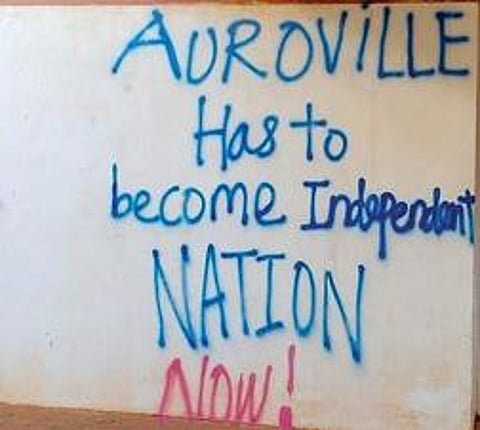 AUROViLLE
Has to
become Independent
NATION
NOW!